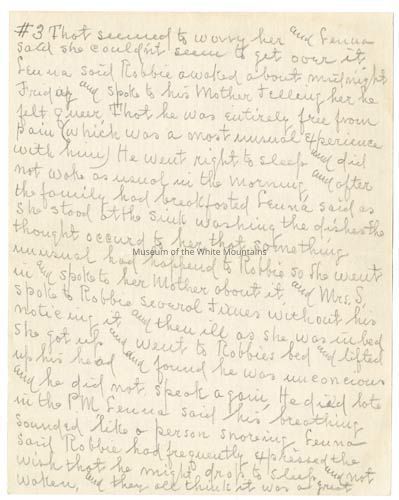 #3 That seemed to worry her and Lenna
said she couldn't seem to get over it,
Lenna said Robbie awaked about midnight
Friday and spoke to his Mother telling her he
felt queer, That he was entirely free from
pain (which was a most unusual experience
with him) He went right to sleep and did
not wake as usual in the morning, and after
the family had breakfasted Lenna said as
she stood at the sink washing the dishes the
thought occurd to her that something
Museum of the White Mountains
unusual had happend to Robbie so she went
in and spoke to her Mother about it and Mrs. S.
spoke to Robbie several times without his
noticing it and then ill as she was in bed
she got up and went to Robbies bed and lifted
up his head and found he was unconcious
and he did not speak again, He died late
in the P.M. Lenna said his breathing
sounded like a person snoreing Lenna
said Robbie had frequently expressed the
wish that he might drop to sleep and not
waken, and they all think it was a great